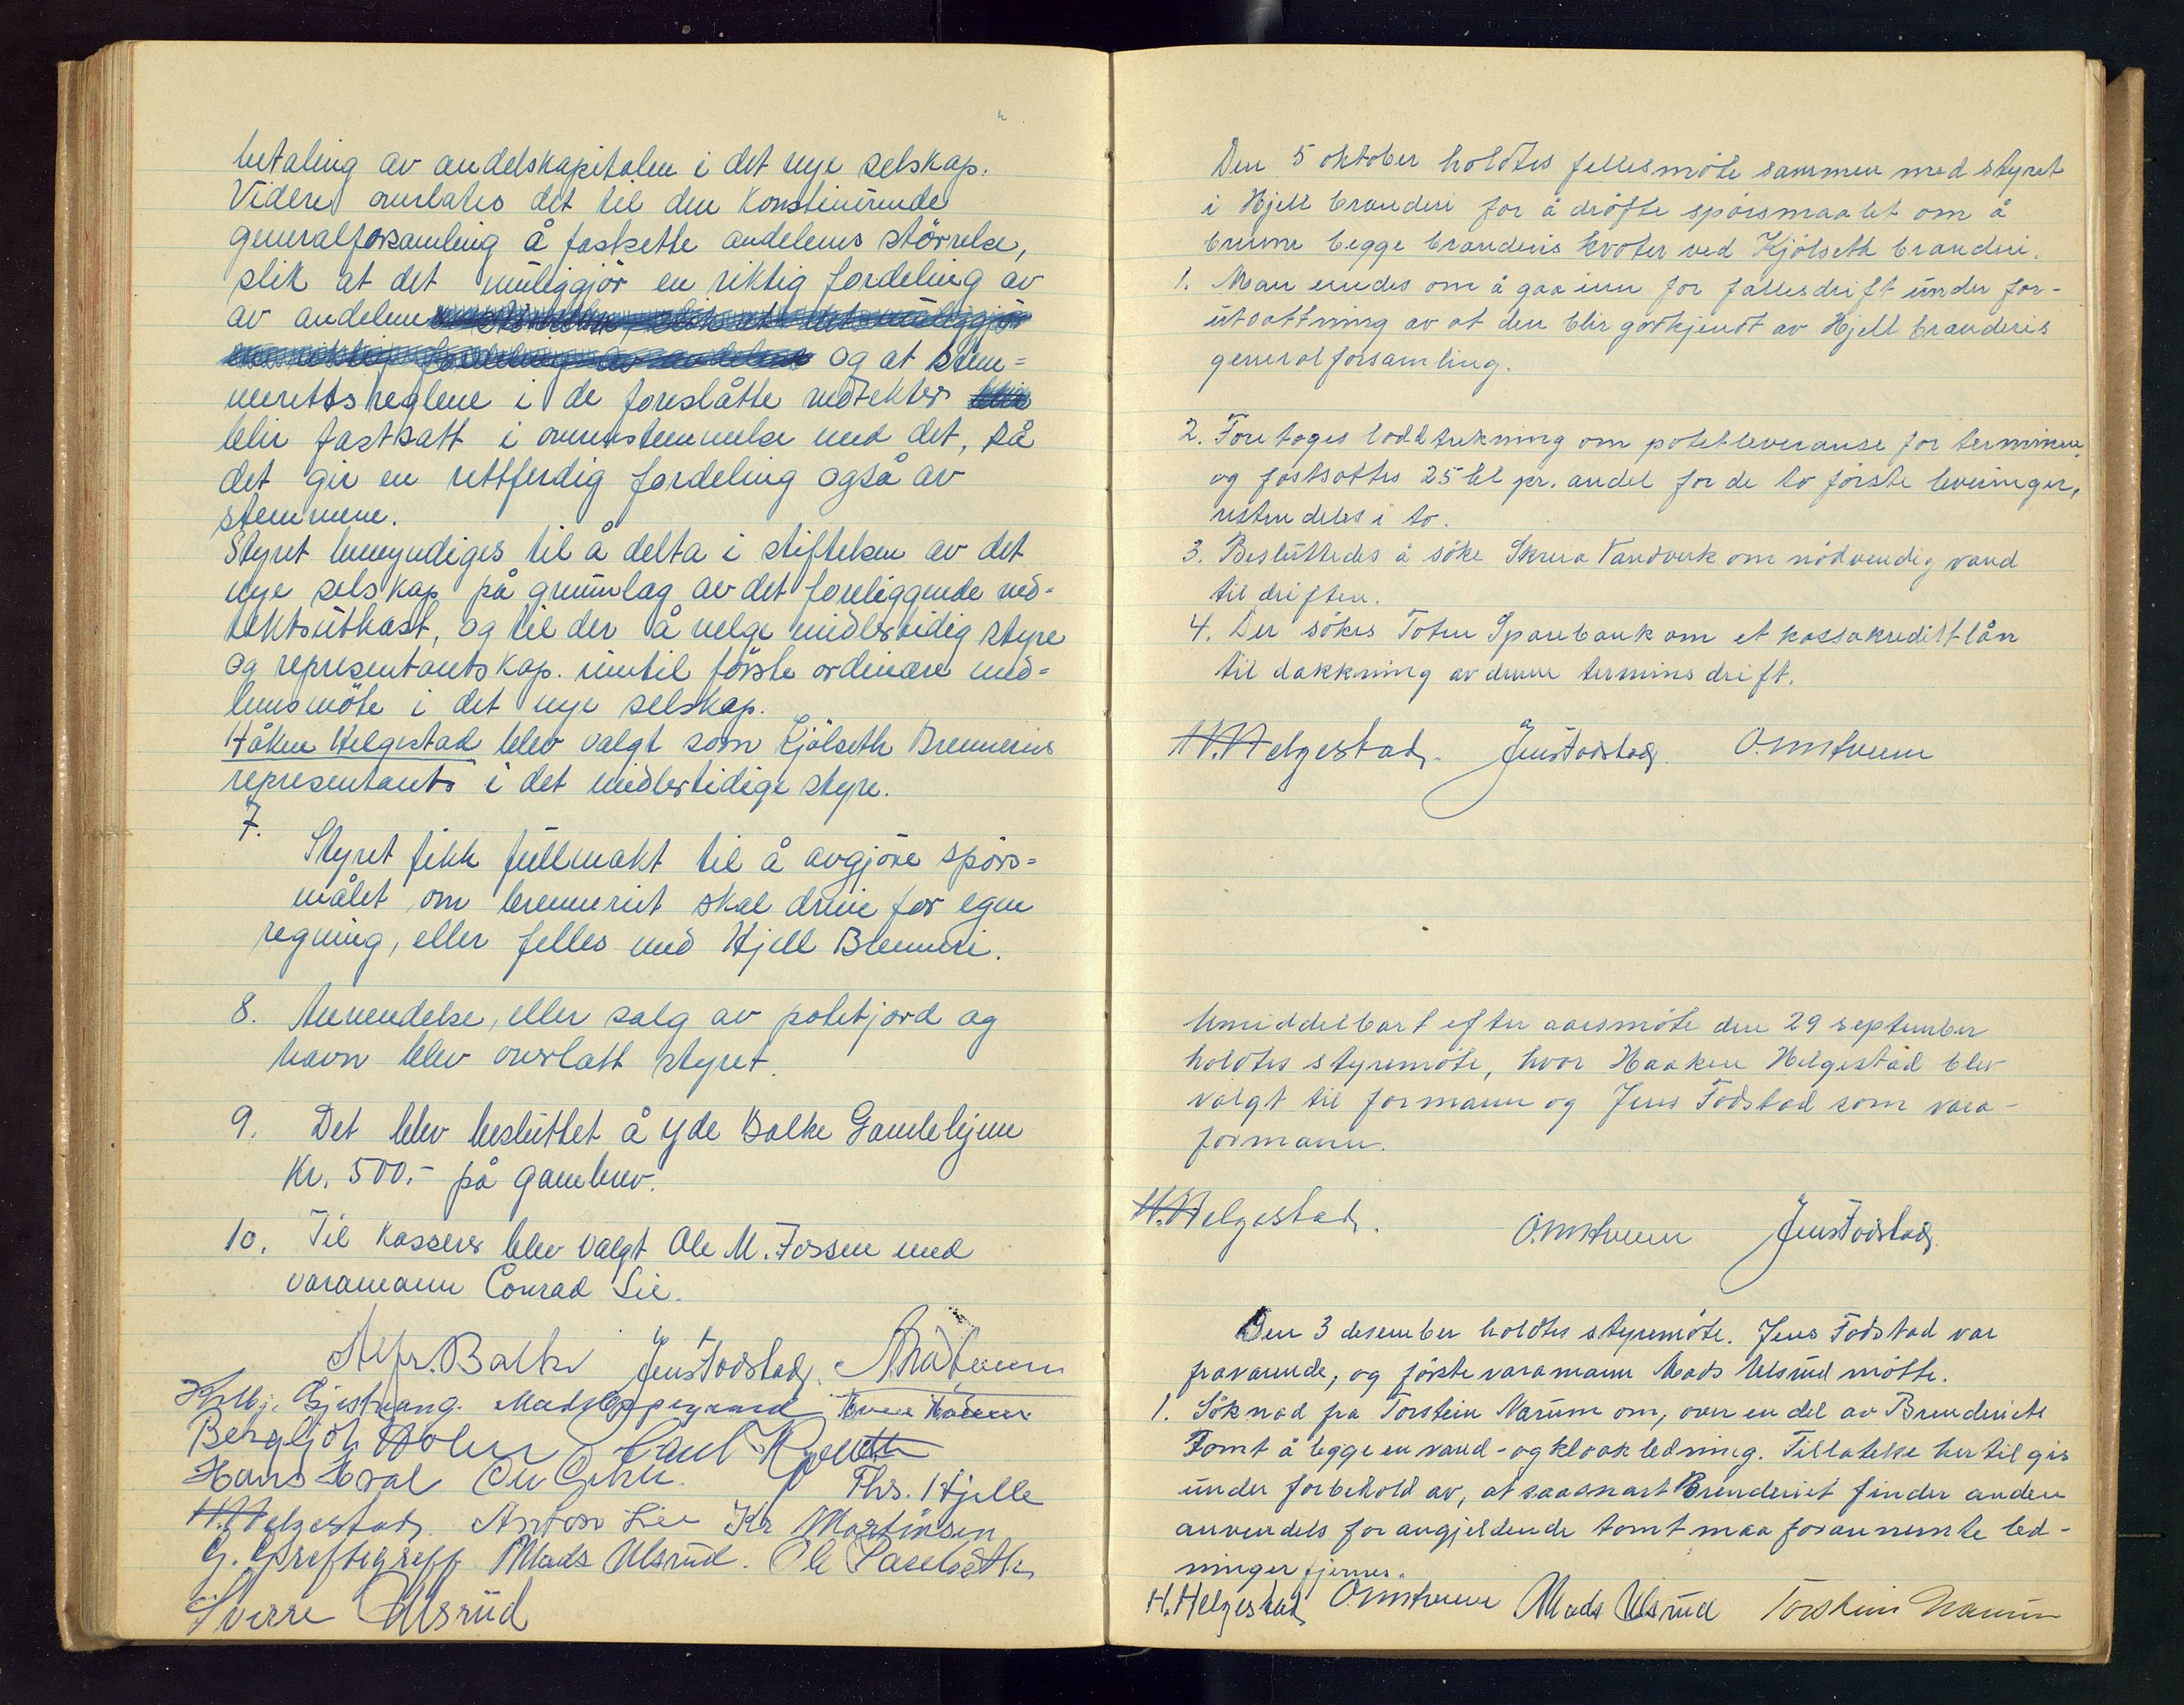 betaling av andelskapitalen i det nye selskap.
Videre overlates det til den konstinúrende
generalforsamling å faststette andelenes större​lse,
slik at det múliggjör en riktig fordeling av
av andelene og at stem=
merettsreglene i de foreslåtte vedtekter
blir fastsatt i overenstemmelse med det, så
det gir en rettferdig fordeling også av
stemmene.
Styret bemyndiges til å delta i stiftelsen av det
nye selskap på grúnnlag av det foreliggende ved=
tektsútkast, og til der å velge midlertidig styre
og representantskap. inntil förste ordinære med=
lemsmöte i det nye selskap.
Håken Helgestad blev valgt som Kjölseth Brenneries
representants i det midlertidige styre.
7.
Styret fikk fúllmakt til å avgjöre spörs=
målet om brenneriet skal drive for egen
regning, eller felles med Hjell Brenneri.
8. Anvendelse, eller salg av potetjord og
havn blev overlatt styret.
9. Det blev beslúttet å yde Balke Gamlehjem
Kr. 500.- på gavebrev.
10. Til kasserer blev valgt Ole M. Fossen med
varamann Conrad Lie.
Alfr. Balke Jens Todstad.
Mads Oppegaard
Bergljot Holm Paul
Hans Hval Ths. Hjelle
H. Helgestad. Anton Lie Kr Martinsen
G. Greftegreff Mads Ulsrúd. Ole
Sverre Ulsrúd
Den 5 oktober holdtes fellesmöte sammen med styret
i Hjell brænderi for å dröfte spörsmaalet om å
brenne begge brænderis kvoter ved Kjölseth brænderi.
1. Man enedes om å gaa inn for fællesdrift únder for-
útsættning av at den blir godkjendt av Hjell brænderis
generalforsamling.
2. Foretoges loddtrekning om potetleveranse for terminen
og fastsattes 25 hl pr. andel for de to förste leveringer,
resten deles i to.
3. Beslúttedes å söke Skreia Vandverk om nödvendig vand
til driften.
4. Der sökes Toten Sparebank om et kassakredittlån
til dækkning av denne termins drift.
H. Helgestad. Jens Todstad.
Umiddelbart efter aarsmöte den 29 september
holdtes styremöte, hvor Haaken Helgestad blev
valgt til formann og Jens Todstad som vara-
formann.
H. Helgestad. Jens Todstad.
Den 3 desember holdtes styremöte. Jens Todstad var
fraværende, og förste varamann Mads Ulsrúd mötte.
1. Söknad fra Torstein Narúm om, over en del av Brenderiets
Tomt å legge en vand- og kloakledning. Tillatelse hertil gis
únder forbehold av, at saasnart Brenderiet finder anden
anvendels for angjeldende tomt maa forannevnte led-
ninger fjernes.
H. Helgestad Mads Ulsrúd Torstein Narúm